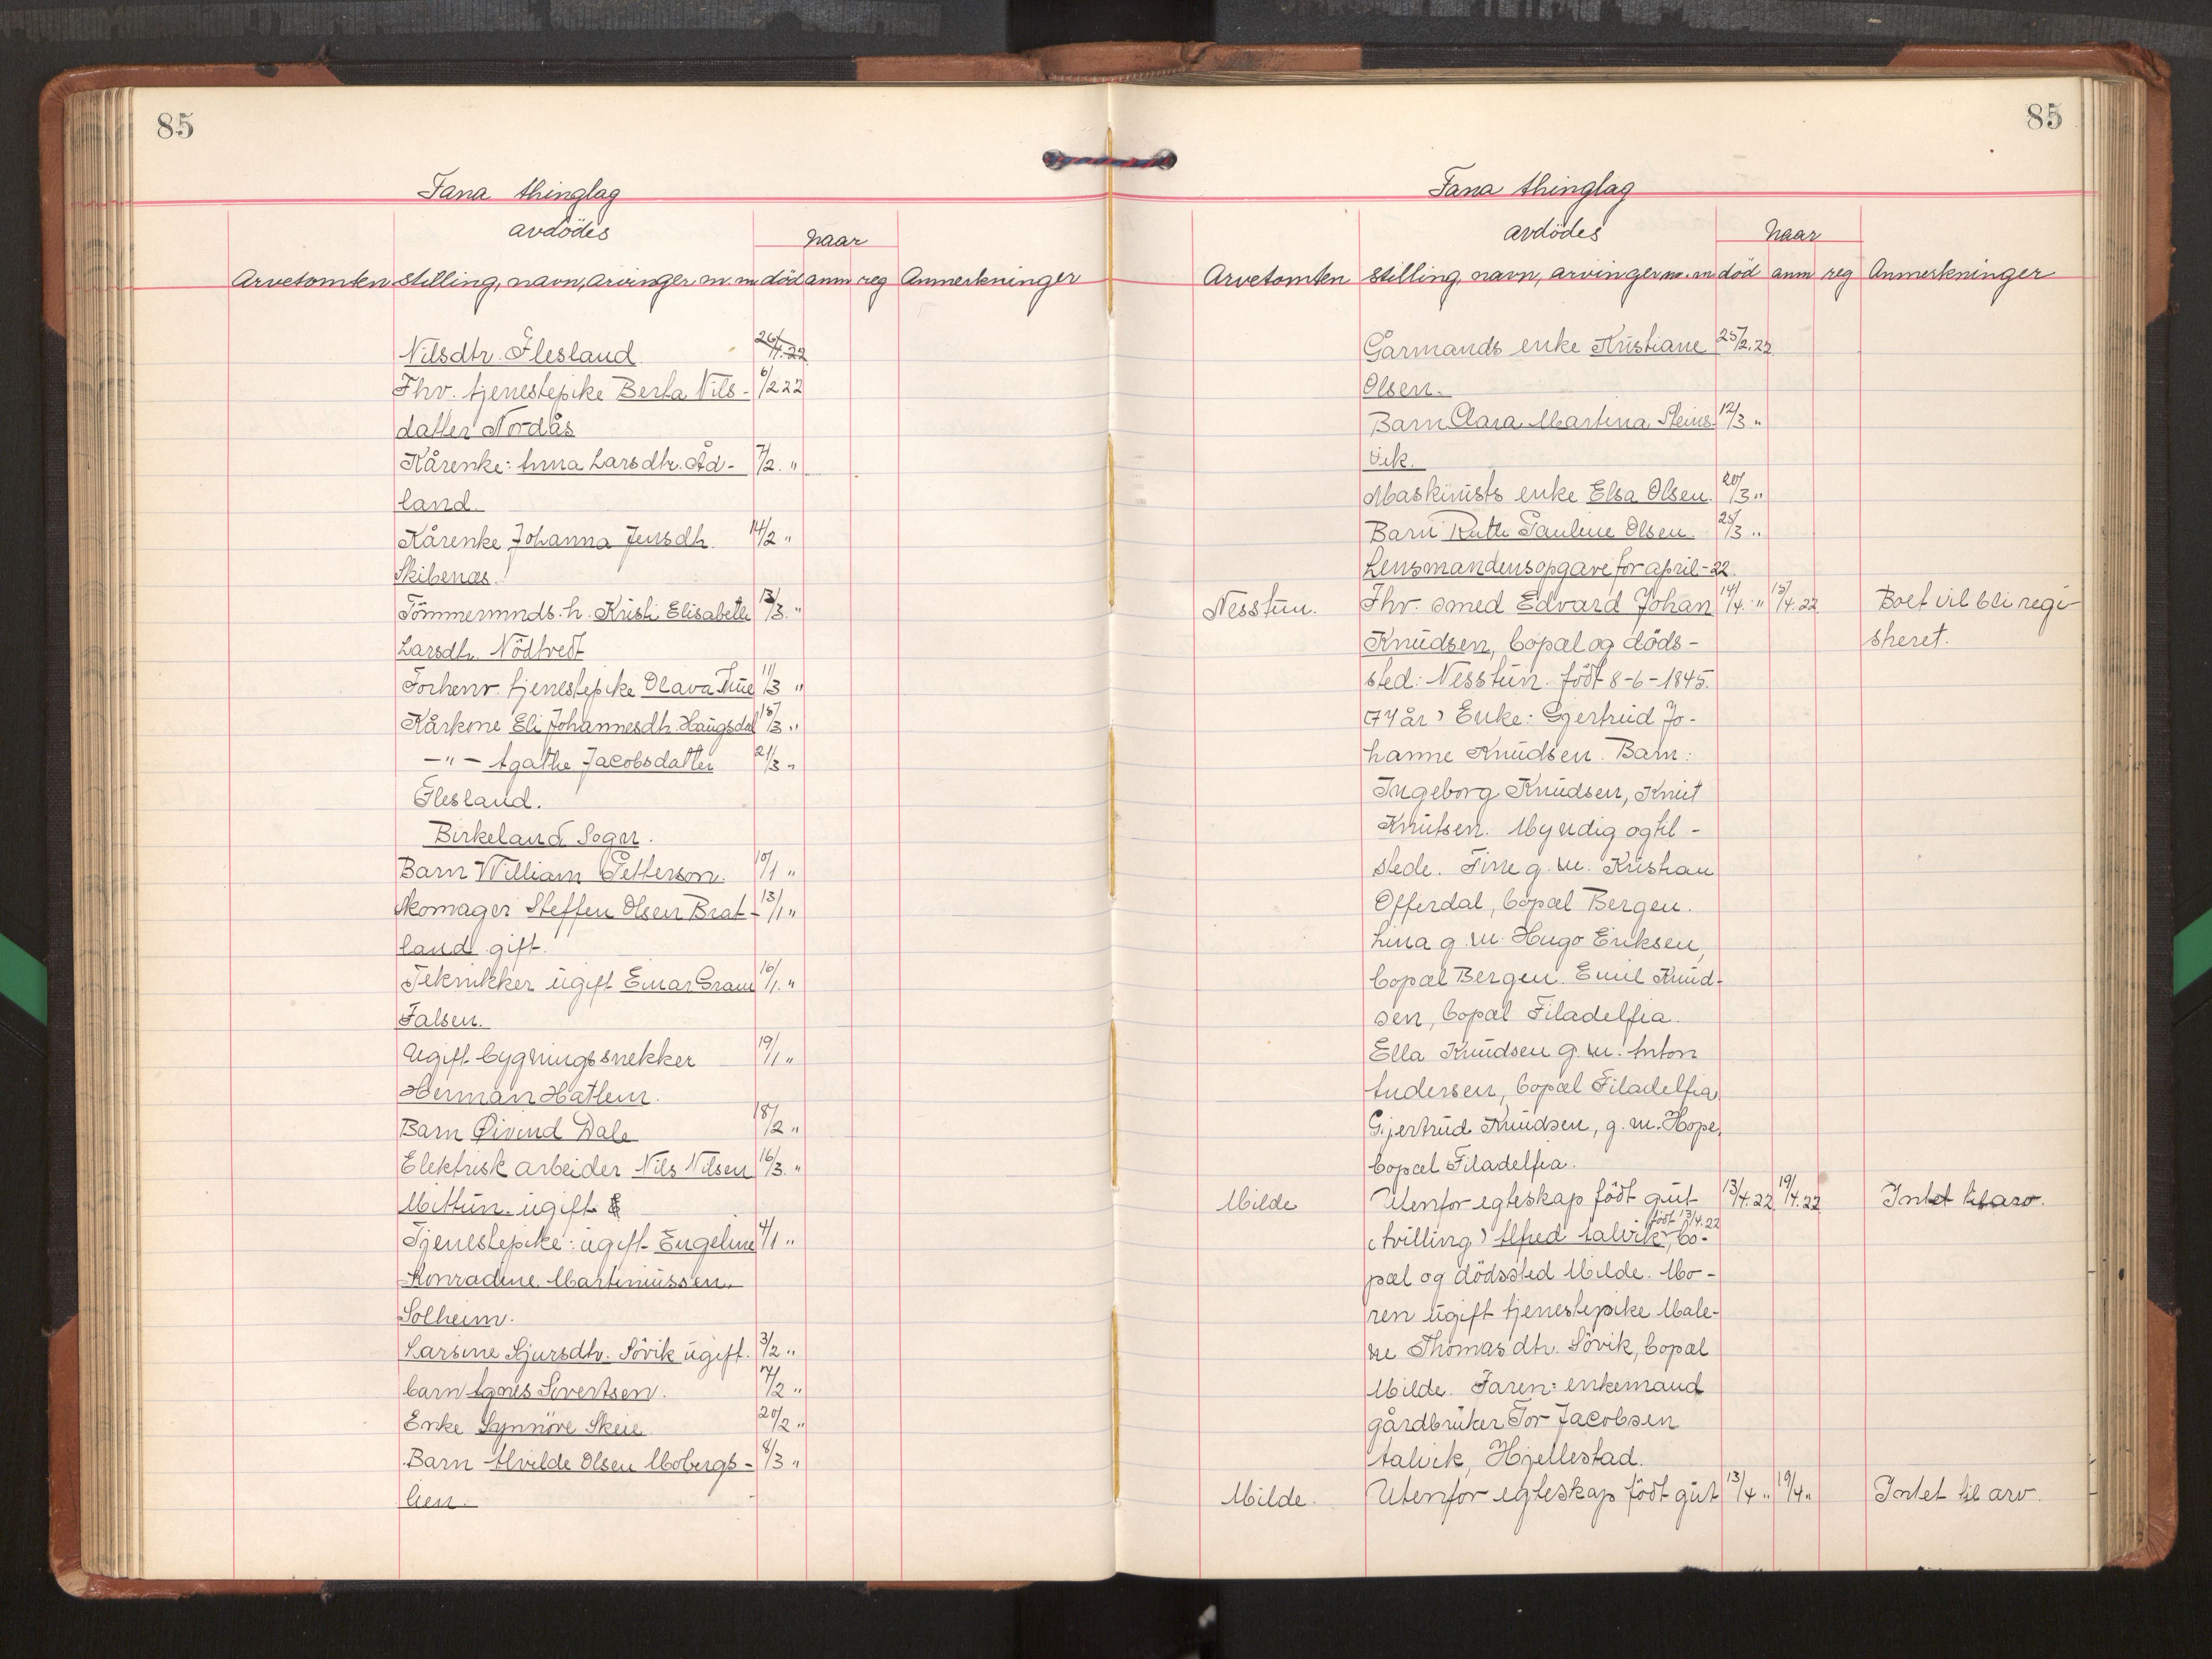 85
Fana thinglag
avdödes
naar
Arvetomten stilling, navn, arvinger m. m död anm reg Anmerkninger
Nilsdtr. Flesland 26/4.22
Fhv. tjenestepike Berta Nils- 6/2 22
datter Nordås
Kårenke: Anna Larsdtr. Åd- 7/2. "
land.
Kårenke Johanna Jensdtr. 14/2 "
Skibenæs.
Tömmermnds. h. Kristi Elisabeth 13/3. "
Larsdtr. Nödtvedt
Forhenv. tjenestepike Olava TTue 11/3 "
Kårkone Eli Johannesdtr. Haugsdal 15/3 "
-"- Agathe Jacobsdatter 21/3 "
Flesland.
Birkeland Sogn.
Barn William Petterson. 10/1 "
Skomager Steffen Olsen Brat- 13/1 "
land gift.
Teknikker ugift Einar Gram 16/1. "
Falsen.
Ugift bygningssnekker 19/1 "
Herman Hatlem.
Barn Øivind Dale 18/2 "
Elektrisk arbeider Nils Nilsen 16/3. "
Mittun. ugift
Tjenestepike: ugift Engeline 4/1 "
Konradine Martinussen.
Solheim.
Larsine Sjursdtr. Sövik ugift. 3/2 "
barn Agnes Sivertsen. 17/2 "
Enke Synnöve Skeie 20/2 "
Barn Alvilde Olsen Mobergs- 8/3 "
lien.
85
Fana thinglag
avdödes
naar
Arvetomten stilling, navn, arvinger m. m död anm reg Anmerkninger
Gårmands enke Kristiane 25/2.22
Olsen.
Barn Clara Martina Steins- 12/3 "
vik.
Maskinists enke Elsa Olsen. 20/3 "
Barn Ruth Pauline Olsen. 25/3 "
Lensmandens opgave for april-22.
Nesstun. Fhv. smed Edvard Johan 14/4. " 15/4.22 Boet vil bli regi-
Knudsen, bopæl og döds- streret.
sted: Nesstun. født 8-6-1845.
(77 år) Enke: Gjertrud Jo-
hanne Knudsen. Barn:
Ingeborg Knudsen, Knut
Knutsen. Myndig og til-
stede. Fine g. m. Kristian
Offerdal, bopæl Bergen.
Lina g. m. Hugo Eriksen,
bopæl Bergen. Emil Knud-
sen, bopæl Filadelfia.
Ella Knudsen g. m. Anton
Andersen, bopæl Filadelfia
Gjertrud Knudsen, g. m. Hope,
bopæl Filadelfia.
Milde Utenfor egteskap födt gut 13/4.22 19/4.22 Intet til arv.
født 13/4.22
(tvilling) Alfred Aalvik, bo-
pæl og dödssted Milde. Mo-
ren ugift tjenestepike Male-
ne Thomasdtr. Sövik, bopæl
Milde. Faren: enkemand
gårdbruker Tor Jacobsen
Aalvik, Hjellestad.
Milde. Utenfor egteskap födt gut 13/4 " 19/4 " Intet til arv.